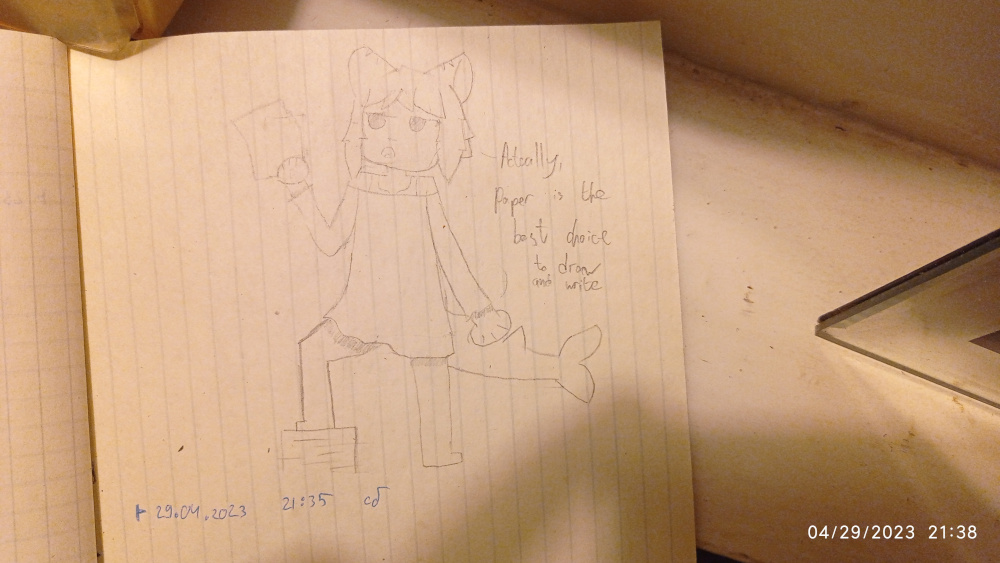 Actually,
paper is the
best choice
to draw
and write
29.04.2023 21:35 сб
04/29/2023 21:38